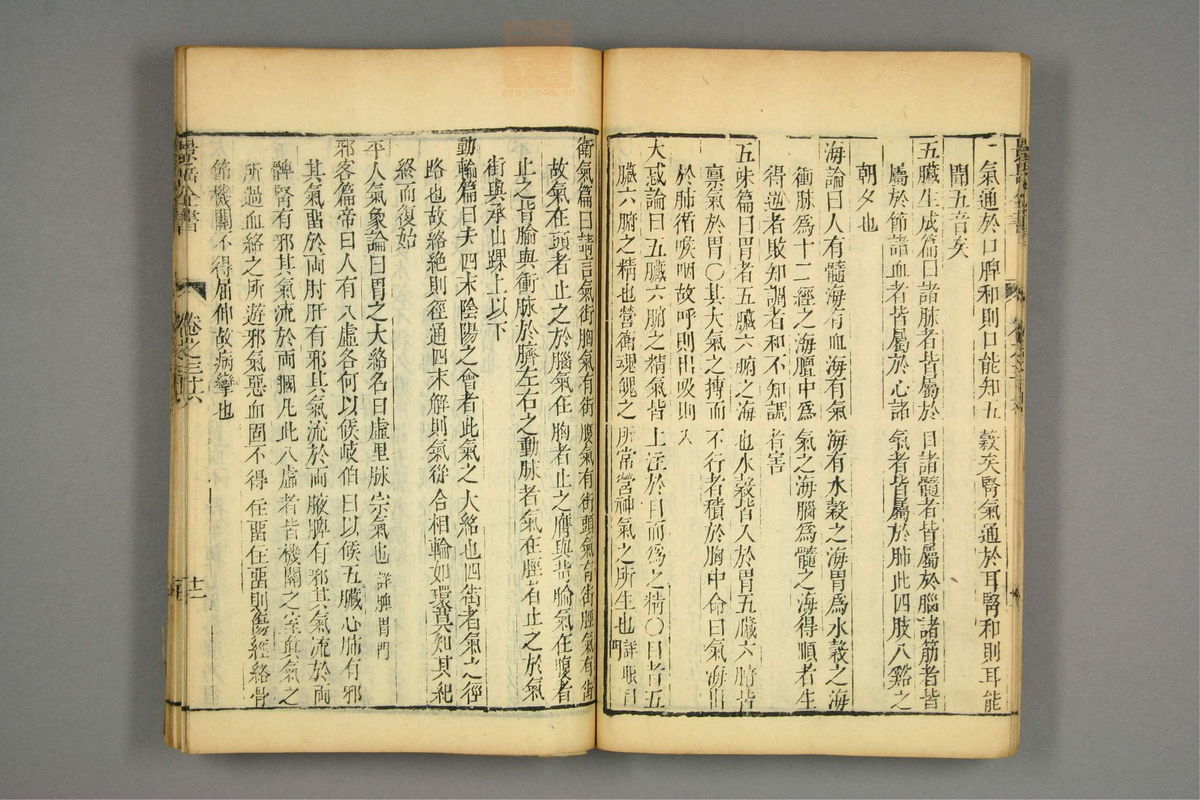 氣通於口脾和則口能知五穀矣腎氣通於耳腎和則耳能
聞五音矣
五臟生成篇曰諸脉者皆屬於目諸髓者皆屬於腦諸筋者皆
屬於節諸血者皆屬於心諸氣者皆屬於肺此四肢八谿之
朝夕也
海論曰人有髓海有血海有氣海有水穀之海胃爲水穀之海
衝脉爲十二經之海膻中爲氣之海腦爲髓之海得順者生
得逆者敗知調者和不知調者害
五味篇曰胃者五臟六腑之海也水穀皆入於胃五臟六腑皆
禀氣於胃〇其大氣之搏而不行者積於胸中命曰氣海出
於肺循喉咽故呼則出吸則入
大惑論曰五臟六腑之精氣皆上注於目而爲之精〇目者五
臟六腑之精也營衛魂魄之所常營神氣之所生也詳眼目
門
衛氣篇曰請言氣街胸氣有街腹氣有街頭氣有街脛氣有街
故氣在頭者止之於腦氣在胸者止之膺與背腧氣在腹者
止之背腧與衝脉於臍左右之動脉者氣在脛者止之於氣
街與承山踝上以下
動輸篇曰夫四末陰陽之會者此氣之大絡也四街者氣之徑
路也故絡絶則徑通四末解則氣從合相輸如環莫知其紀
終而復始
平人氣象論曰胃之大絡名曰虛里脉宗氣也詳脾胃門
邪客篇帝曰人有八虛各何以候岐伯曰以候五臟心肺有邪
其氣畱於両肘肝有邪其氣流於両腋脾有邪其氣流於両
髀腎有邪其氣流於両膕凡此八虛者皆機關之室真氣之
所過血絡之所遊邪氣惡血固不得住畱住畱則傷經絡骨
節機關不得屈伸故病攣也
卷之三十六
廿二